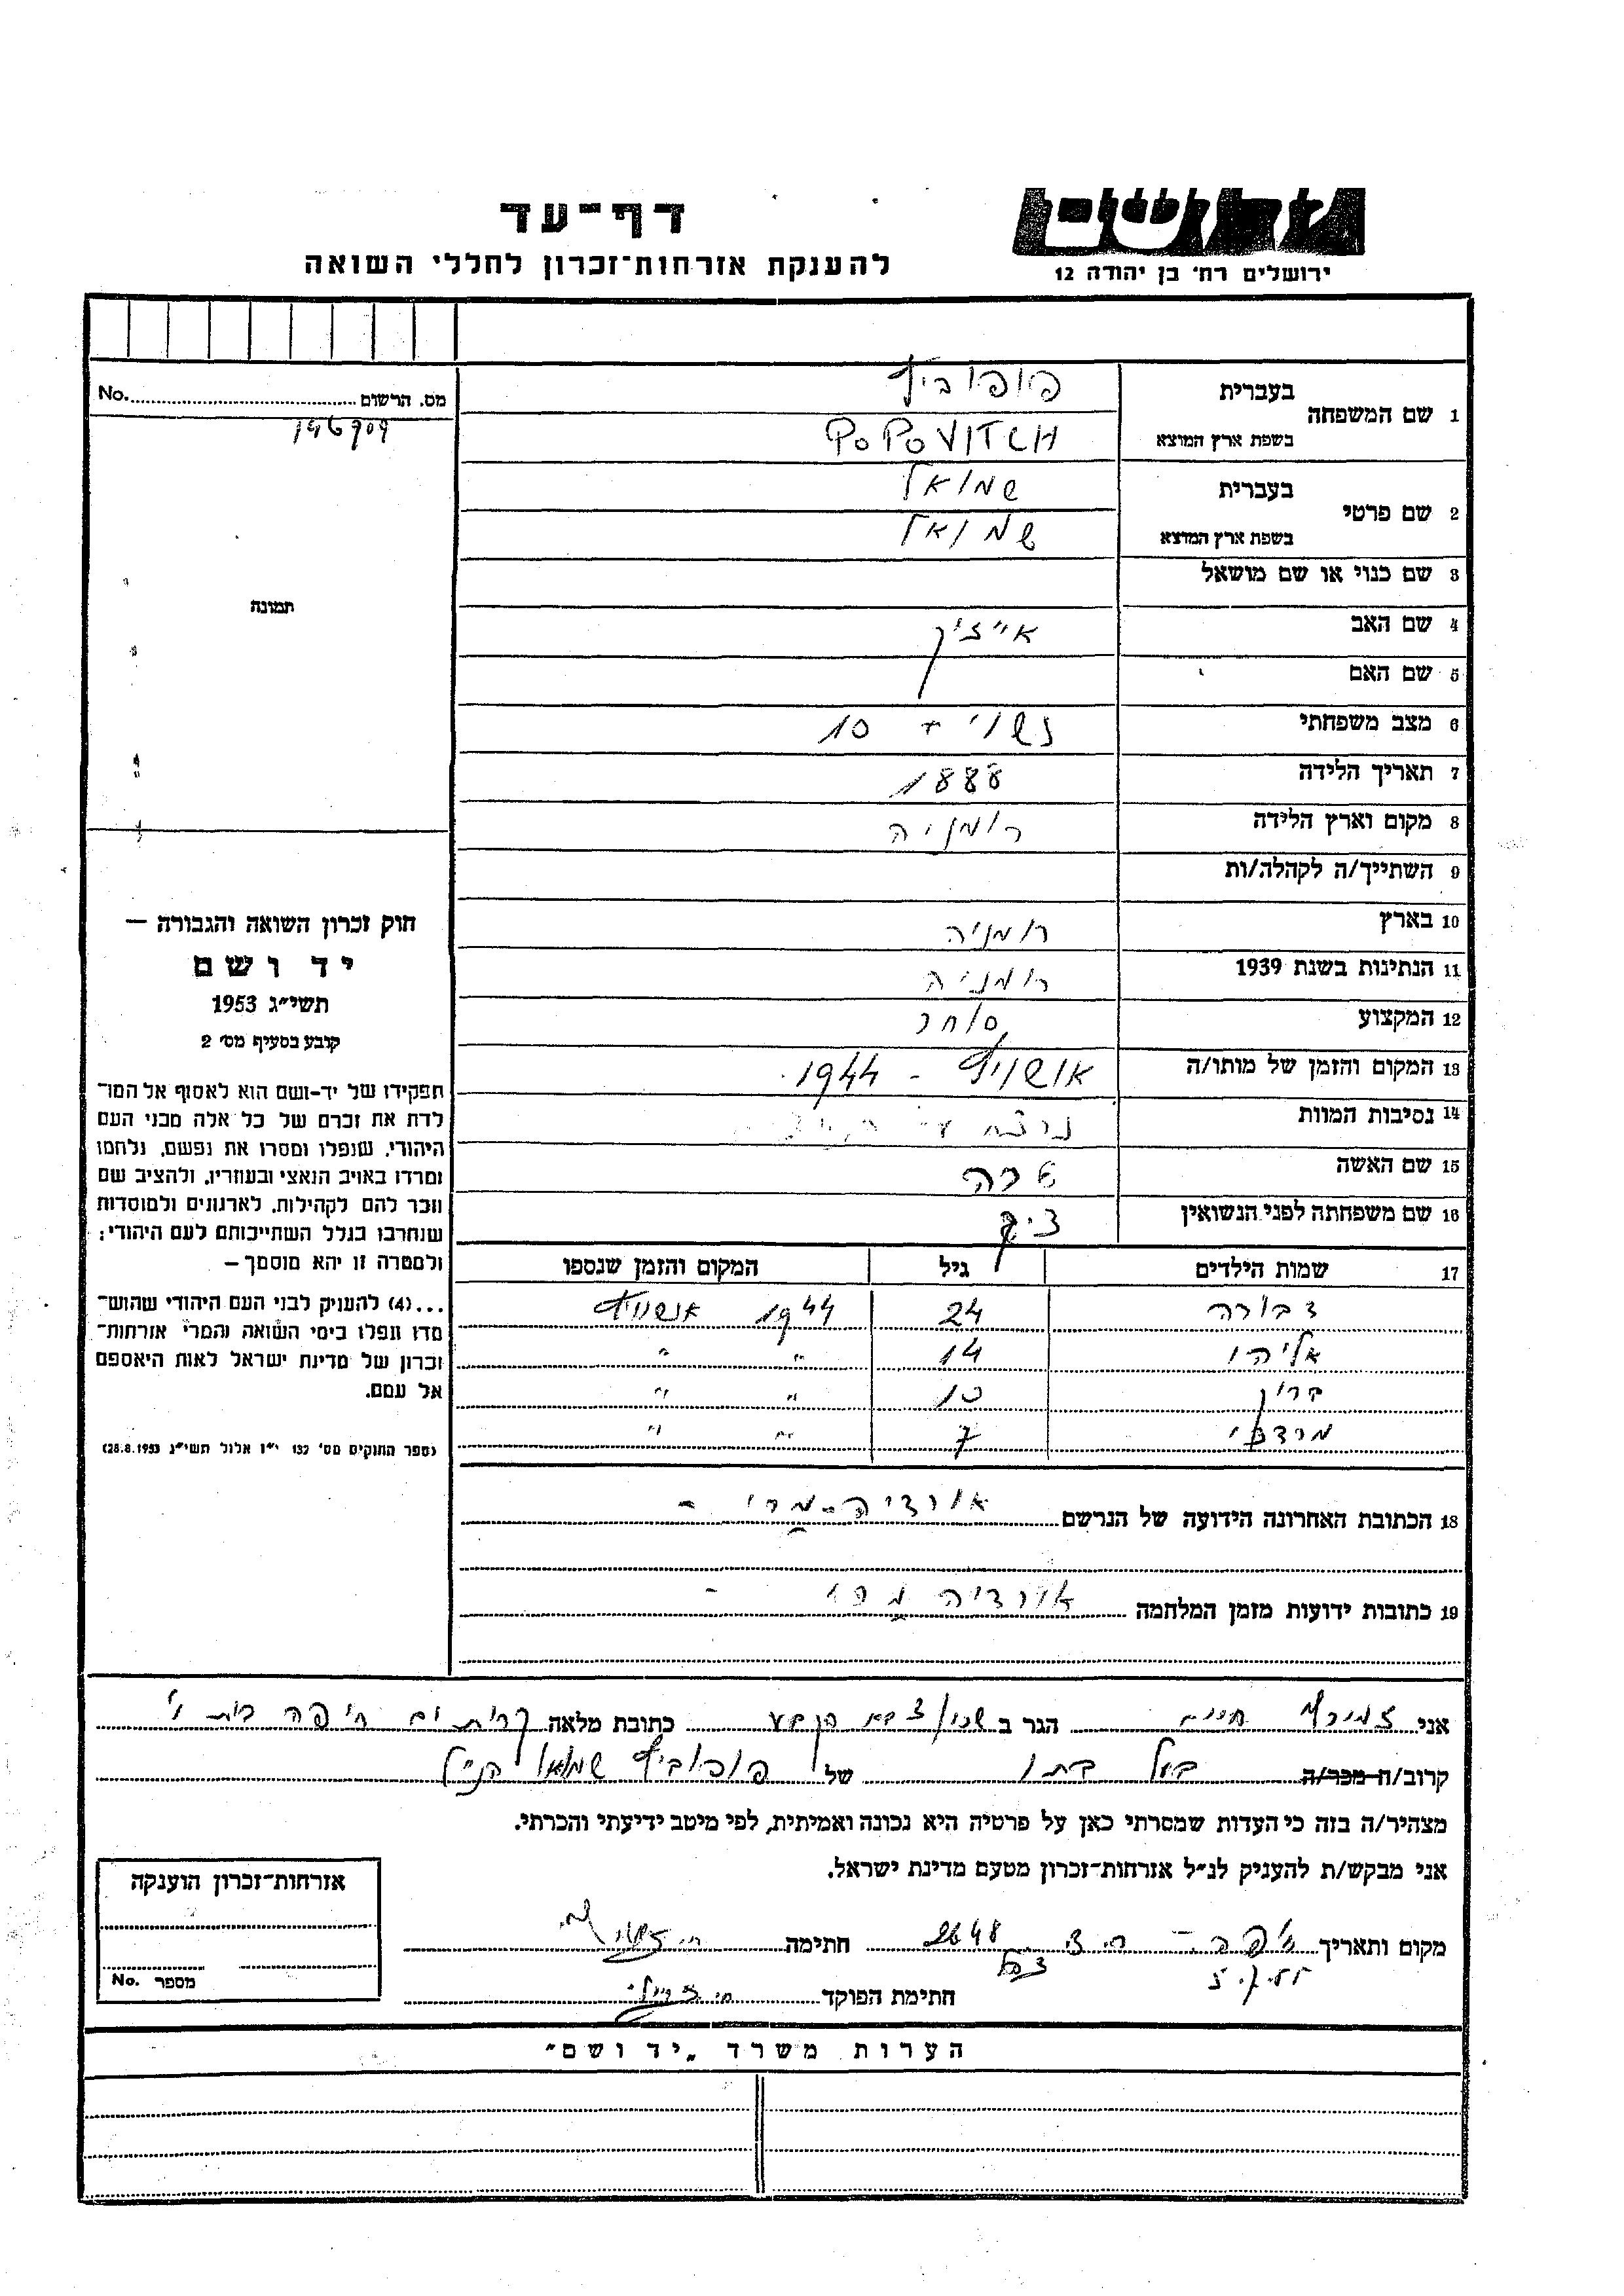 דף־עד
להענקת אזרחות־זכרון לחללי השואה
ידושם
ירושלים רח' בן יהודה 12
מס. הרשום No.
196909
תמונה
1 שם המשפחה
בעברית פופוביץ
בשפת ארץ המוצא POPOVITCH
2 שם פרטי
בעברית שמואל
בשפת ארץ המוצא שמואל
3 שם כנוי או שם מושאל
4 שם האב אייזיק
5 שם האם
6 מצב משפחתי נשוי + 10
7 תאריך הלידה 1888
8 מקום וארץ הלידה רומניה
9 השתייך/ה לקהלה/ות
10 בארץ רומניה
11 הנתינות בשנת 1939 רומניה
12 המקצוע סוחר
13 המקום והזמן של מותו/ה אושויץ - 1944
14 נסיבות המוות
15 שם האשה שרה
16 שם משפחתה לפני הנשואין
17 שמות הילדים גיל המקום והזמן שנספו
דבורה 24 1944 אושויץ
אליהו 14 " "
10 " "
מרדכי 7 " "
18 הכתובת האחרונה הידועה של הנרשם
19 כתובות ידועות מזמן המלחמה
חוק זכרון השואה והגבורה —
יד ושם
תשי״ג 1953
קובע בסעיף מס׳ 2
תפקידו של יד-ושם הוא לאסוף אל המו־
לדת את זכרם של כל אלה מבני העם
היהודי, שנפלו ומסרו את נפשם, נלחמו
ומרדו באויב הנאצי ובעוזריו, ולהציב שם
וזכר להם לקהילות, לארגונים ולמוסדות
שנחרבו בגלל השתייכותם לעם היהודי;
ולמטרה זו יהא מוסמך —
...(4) להעניק לבני העם היהודי שהוש־
מדו ונפלו בימי השואה והמרי אזרחות־
זכרון של מדינת ישראל לאות היאספם
אל עמם.
(ספר החוקים מס׳ 132 י״ז אלול תשי״ג 28.8.1953)
אני חיים הגר ב כתובת מלאה קרית ים חיפה
קרוב/ה מכר/ה של פופוביץ שמואל הנ״ל
מצהיר/ה בזה כי העדות שמסרתי כאן על פרטיה היא נכונה ואמיתית, לפי מיטב ידיעתי והכרתי.
אני מבקש/ת להעניק לנ״ל אזרחות־זכרון מטעם מדינת ישראל.
מקום ותאריך חתימה
חתימת הפוקד
אזרחות־זכרון הוענקה
מספר No.
הערות משרד „יד ושם״